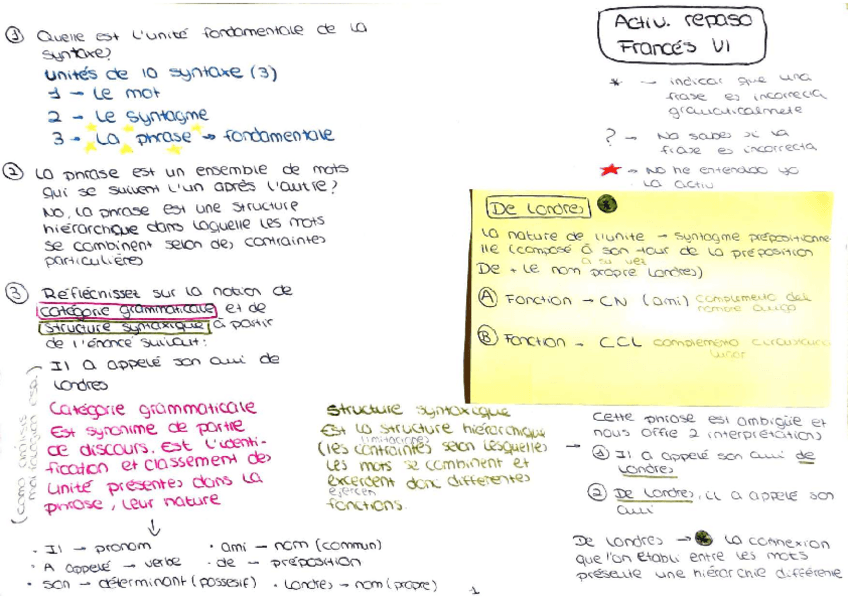 Activ. repaso
Francés VI
* → indicar que una
frase es incorrecta
gramaticalmete
? → No sabes si la
frase es incorrecta
★ → No he entendido yo
la activ
① Quelle est l'unité fondamentale de la
syntaxe?
Unités de lo syntaxe (3)
1 → Le mot
2 → Le syntagme
3 → La phrase → fondamentale
② La phrase est un ensemble de mots
qui se suivent l'un après l'autre?
No, la phrase est une structure
hiérarchique dans laquelle les mots
se combinent selon des contraintes
particulières
③ Réfléchissez sur la notion de
catégorie grammaticale et de
structure syntaxique à partir
de l'énoncé suivant:
Il a appelé son ami de
Londres
(como análisis
morfológico esp.)
Catégorie grammaticale
Est synonime de partie
de discours. Est l'identi-
fication et classement des
unité présentes dans la
phrase, leur nature
· Il → pronom
· A appelé → verbe
· son → déterminant (possesif)
· ami → nom (commun)
· de → préposition
· Londres → nom (propre)
Structure syntaxique
Est la structure hiérarchique
limitaciones
(les contraintes selon lesquelles
les mots se combinent et
excerdent donc différentes
ejercen
fonctions.
De Londres
La nature de l'unite → syntagme prépositionne-
lle (composé à son tour de la préposition
a su vez
De + le nom propre Londres)
Ⓐ Fonction → CN (ami) complemento del
nombre amigo
Ⓑ Fonction → CCL complemento circustancial
lugar
→ Cette phrase est ambigüe et
nous offre 2 interprétations
① Il a appelé son ami de
Londres
② De Londres, il a appelé son
ami
De Londres → la connexion
que l'on établi entre les mots
présente une hiérarchie différente
1